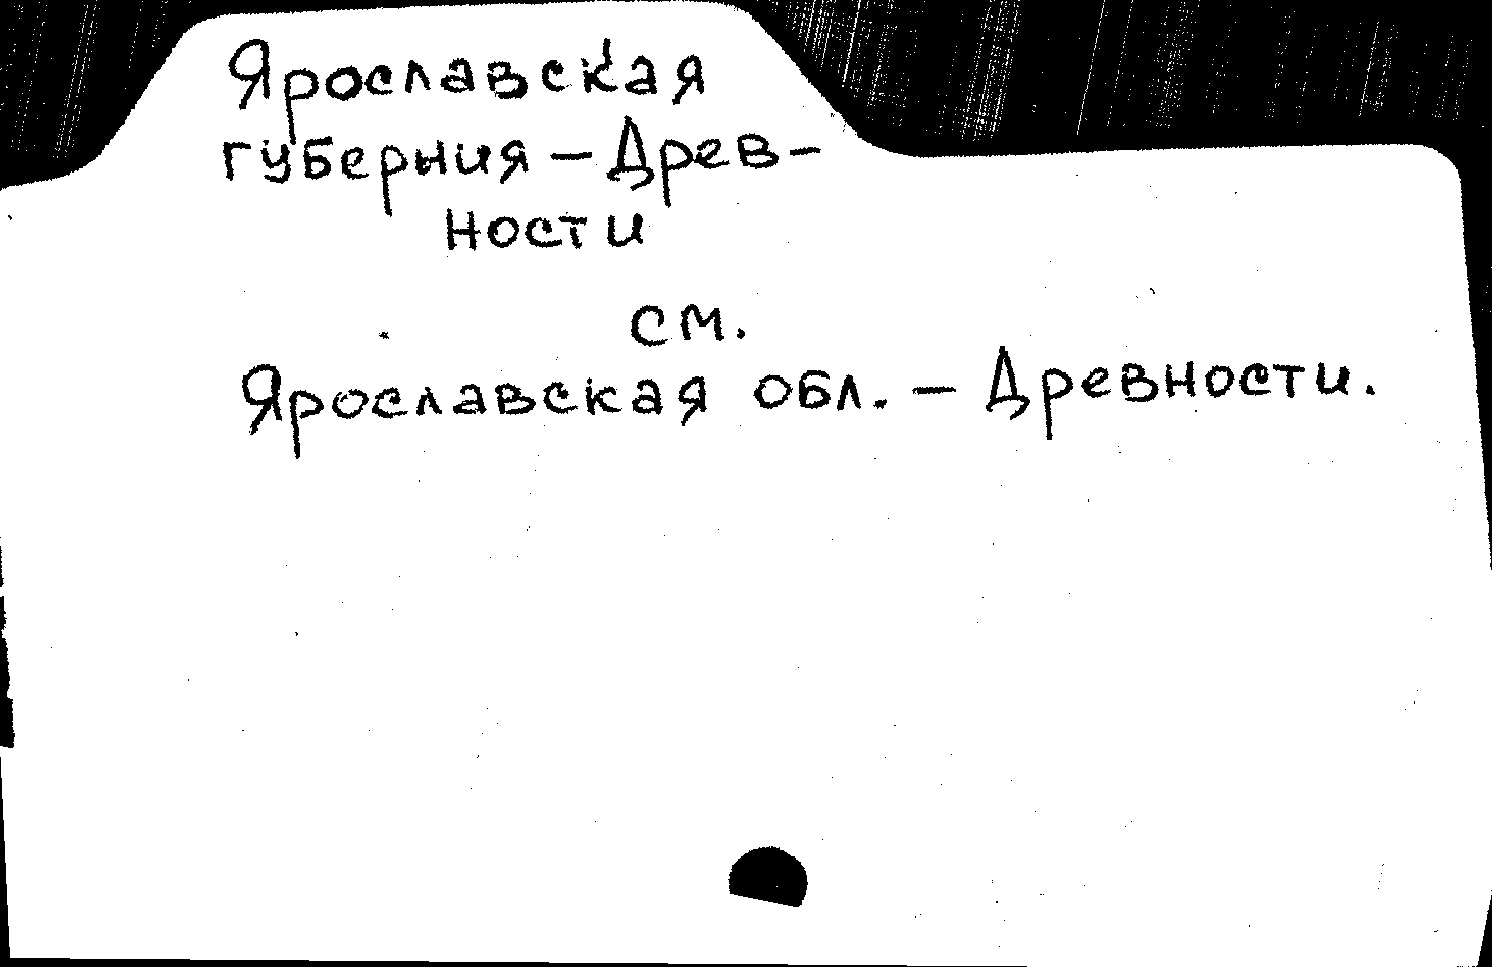 Ярославская
губерния – Древ-
ности
см.
Ярославская обл. – Древности.